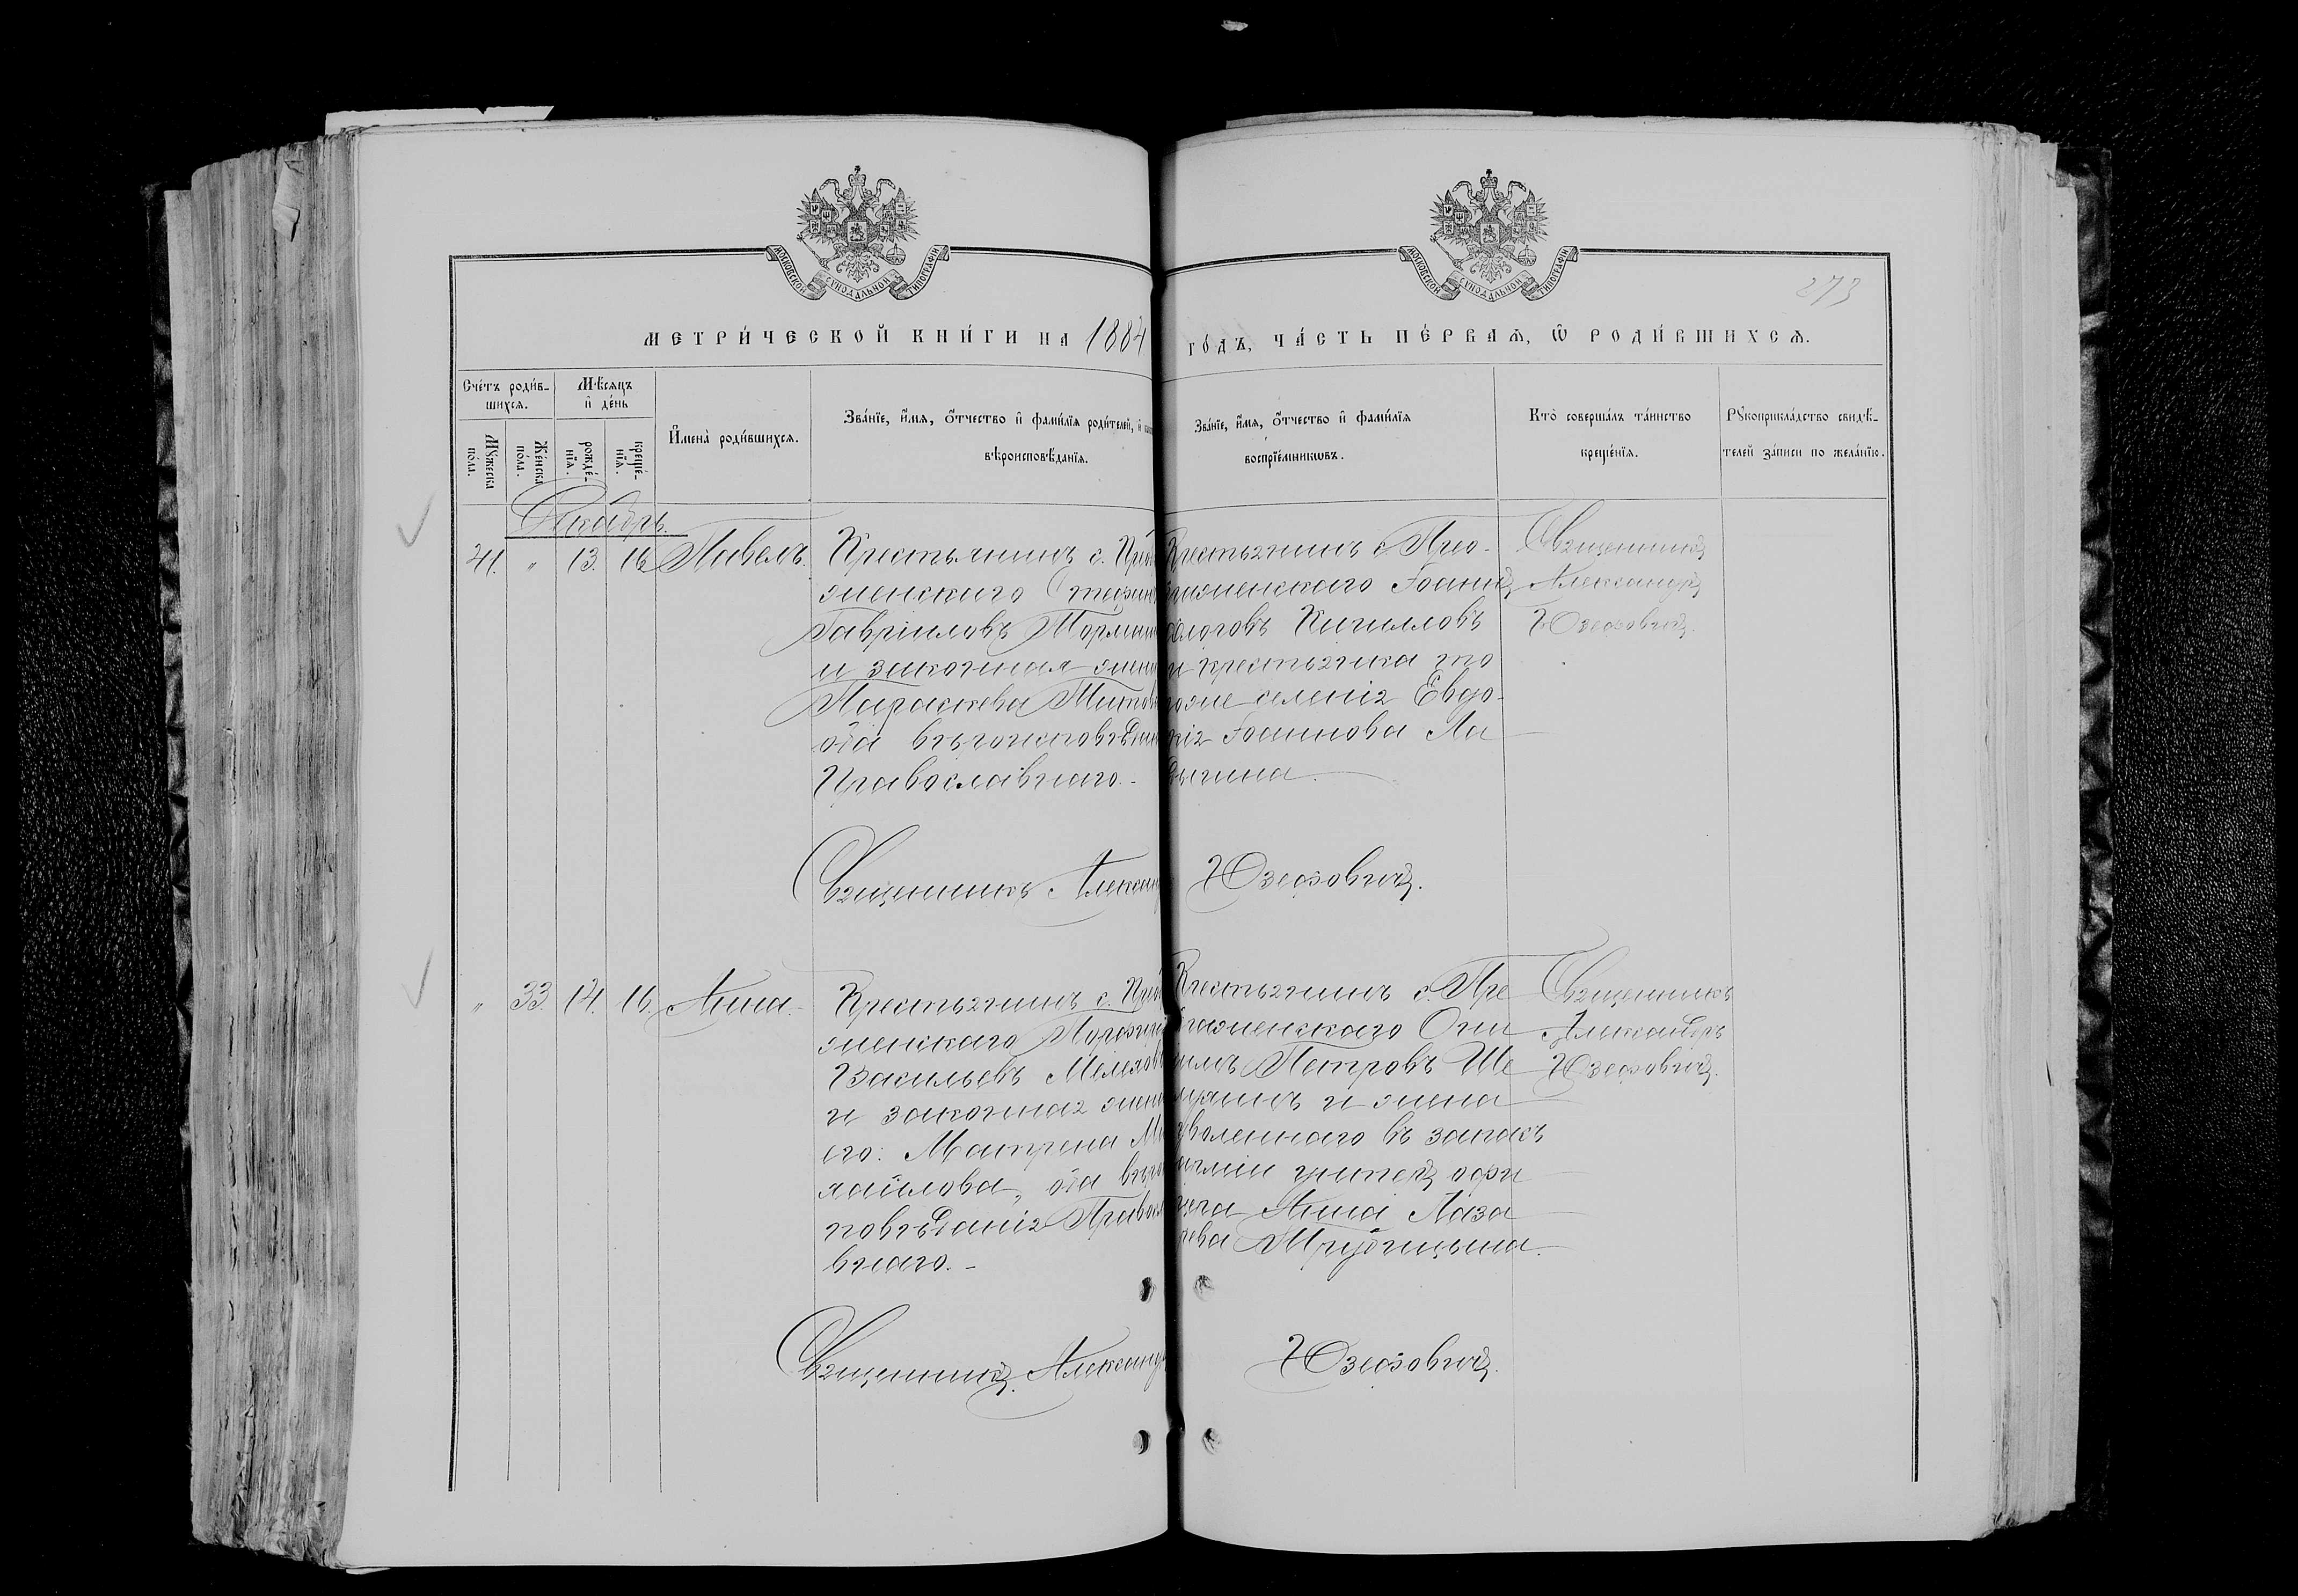 МОСКОВСКОЙ СѴНОДАЛЬНОЙ ТИПОГРАФІИ
МОСКОВСКОЙ СѴНОДАЛЬНОЙ ТИПОГРАФІИ
273
МЕТРИ́ЧЕСКОЙ КНИ́ГИ НА 1884
ГО́ДЪ, ЧА́СТЬ ПЕ́РВАѦ, Ѿ РОДИ́ВШИХСѦ.
Сче́тъ роди́в-
шихсѧ.
Мꙋ́жеска
по́ла.
Же́нска
по́ла.
Мѣ́сѧцъ
и҆ де́нь
рожде́-
нїѧ.
креще́-
нїѧ.
И҆мена̀ роди́вшихсѧ.
Зва́нїе, и҆́мѧ, ѻ҆́тчество и҆ фами́лїѧ роди́телей, и҆
вѣроисповѣ́данїѧ.
Зва́нїе, и҆́мѧ, ѻ҆́тчество и҆ фами́лїѧ
воспрїе́мникѡвъ.
Кто̀ соверша́лъ та́инство
креще́нїѧ.
Рꙋкоприкла́дство свидѣ́-
телей за́писи по жела́нїю.
Декабрь.
41. " 13. 16 Павелъ.
Крестьянинъ с. Прео
женскаго
Гавріиловъ
и законная жена
Параскева
оба вѣроисповѣдан
Православнаго. -
Крестьянинъ с. Прео-
браженскаго Іоаннъ
Кирилловъ
и крестьянка то
гоже селенія Евдо-
кія Іоаннова Ла
дыгина.
Священникъ
Александръ
Юзефовичъ.
Священникъ Александ
Юзефовичъ.
" 33. 14. 16. Анна. -
Крестьянинъ с. Прео
женскаго Порфирій
Васильевъ Мелехов
и законная жена
его: Матрена Ми
хайлова, оба вѣро
повѣданія Правосл
внаго. -
Крестьянинъ с. Пре
браженскаго Они
симъ Петровъ Ше
и жена
уволеннаго въ запасъ
арміи унтеръ офи
цера Анна Лаза
рева
Священникъ
Александръ
Юзефовичъ.
Священникъ. Александръ
Юзефовичъ.